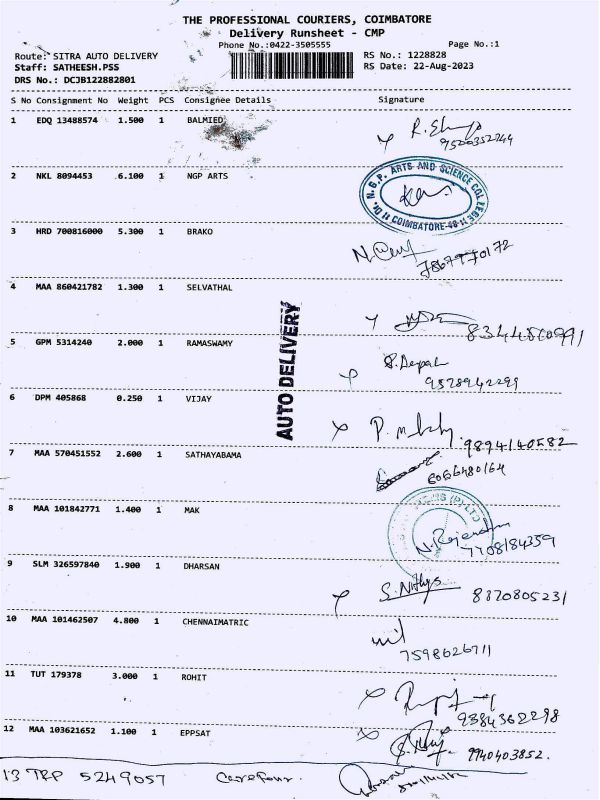 THE PROFESSIONAL COURIERS, COIMBATORE
Delivery Runsheet - CMP
Phone No.:0422-3505555
Page No.:1
Route: SITRA AUTO DELIVERY
RS No.: 1228828
Staff: SATHEESH.PSS
RS Date: 22-Aug-2023
DRS No.: DCJB122882801
S No Consignment No Weight PCS Consignee Details Signature
1 EDQ 13488574 1.500 1 BALMIED
2 NKL 8094453 6.100 1 NGP ARTS
Dr. N.G.P. ARTS AND SCIENCE COLLEGE
COIMBATORE-48
3 HRD 700816000 5.300 1 BRAKO
4 MAA 860421782 1.300 1 SELVATHAL
8344560991
AUTO DELIVERY
5 GPM 5314240 2.000 1 RAMASWAMY
S. Deepak
9578942299
6 DPM 405868 0.250 1 VIJAY
9894140582
7 MAA 570451552 2.600 1 SATHAYABAMA
8 MAA 101842771 1.400 1 MAK
(P) LTD
N. Rajendran
7708184359
9 SLM 326597840 1.900 1 DHARSAN
S. Nithya 8870805231
10 MAA 101462507 4.800 1 CHENNAIMATRIC
7598626711
11 TUT 179378 3.000 1 ROHIT
9384362298
12 MAA 103621652 1.100 1 EPPSAT
9940403852.
13 TRP 5249057 Carefour.